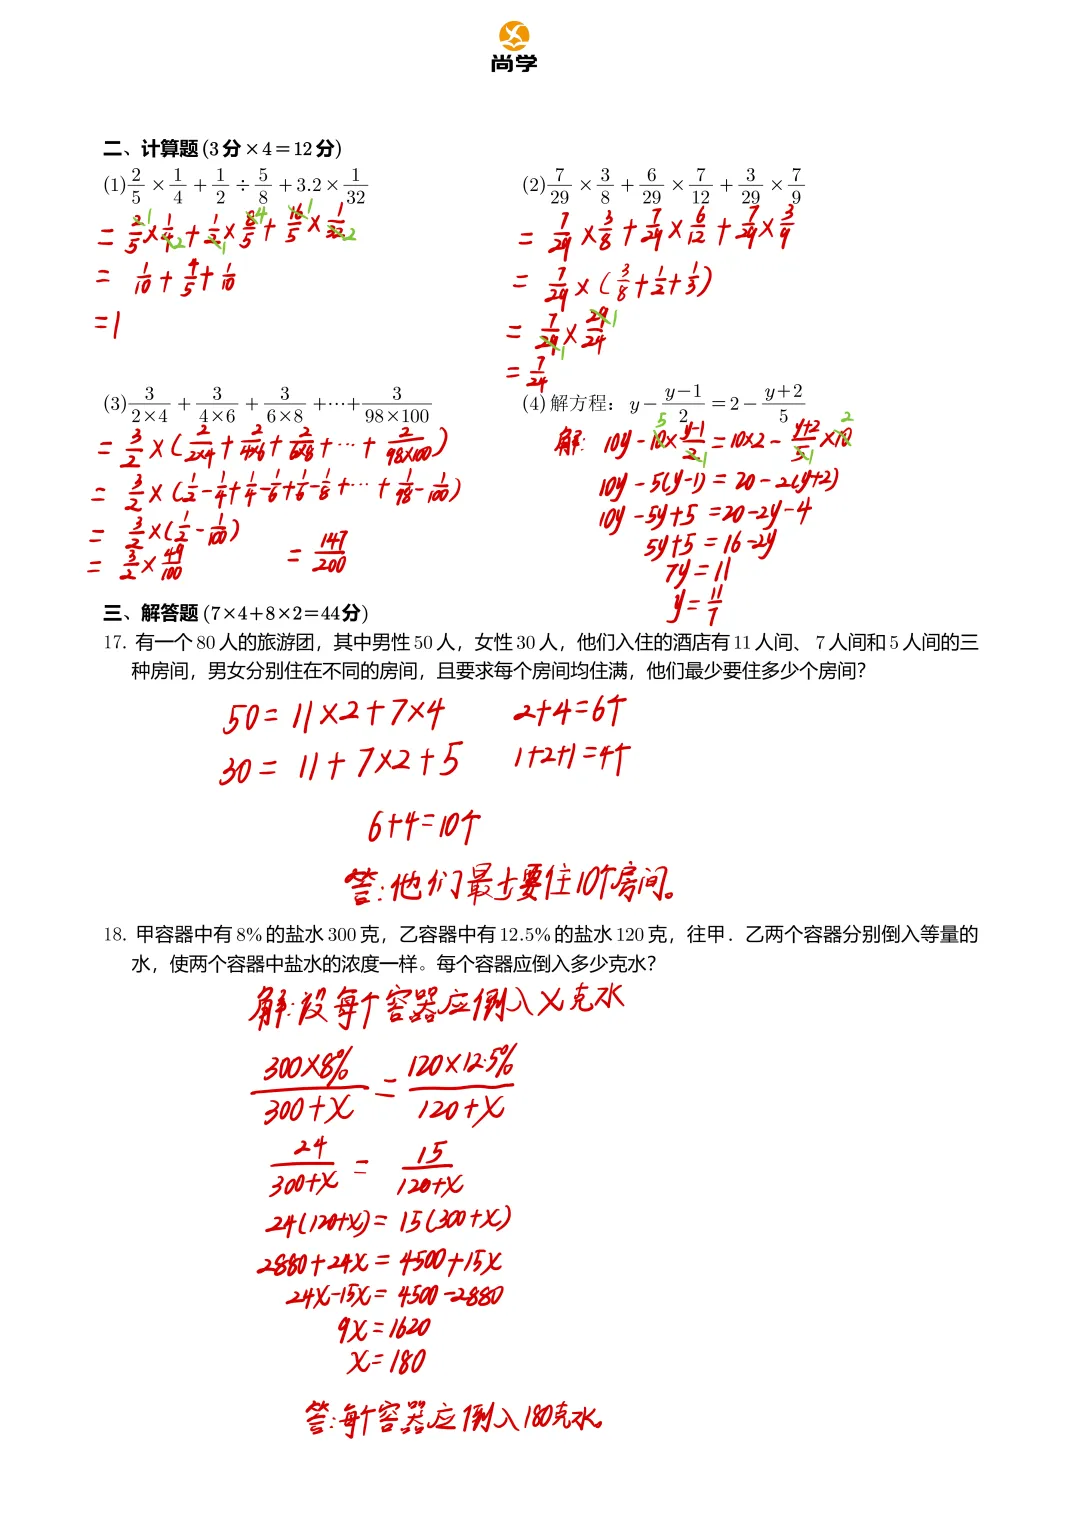 尚学
二、计算题 (3分×4=12分)
(1) 2/5 × 1/4 + 1/2 ÷ 5/8 + 3.2 × 1/32
= 2/5 × 1/4 + 1/2 × 8/5 + 16/5 × 1/32
= 1/10 + 4/5 + 1/10
= 1
(2) 7/29 × 3/8 + 6/29 × 7/12 + 3/29 × 7/9
= 7/29 × 3/8 + 7/29 × 6/12 + 7/29 × 3/9
= 7/29 × (3/8 + 1/2 + 1/3)
= 7/29 × 29/24
= 7/24
(3) 3/(2×4) + 3/(4×6) + 3/(6×8) + ⋯ + 3/(98×100)
= 3/2 × (2/(2×4) + 2/(4×6) + 2/(6×8) + ⋯ + 2/(98×100))
= 3/2 × (1/2 - 1/4 + 1/4 - 1/6 + 1/6 - 1/8 + ⋯ + 1/98 - 1/100)
= 3/2 × (1/2 - 1/100)
= 3/2 × 49/100 = 147/200
(4) 解方程: y - (y-1)/2 = 2 - (y+2)/5
解: 10y - 10×(y-1)/2 = 10×2 - (y+2)/5×10
10y - 5(y-1) = 20 - 2(y+2)
10y - 5y + 5 = 20 - 2y - 4
5y + 5 = 16 - 2y
7y = 11
y = 11/7
三、解答题 (7×4+8×2=44分)
17. 有一个80人的旅游团，其中男性50人，女性30人，他们入住的酒店有11人间、7人间和5人间的三
种房间，男女分别住在不同的房间，且要求每个房间均住满，他们最少要住多少个房间?
50 = 11×2+7×4 2+4=6个
30 = 11+7×2+5 1+2+1=4个
6+4=10个
答:他们最少要住10个房间。
18. 甲容器中有8%的盐水300克，乙容器中有12.5%的盐水120克，往甲．乙两个容器分别倒入等量的
水，使两个容器中盐水的浓度一样。每个容器应倒入多少克水?
解:设每个容器应倒入x克水
(300×8%)/(300+x) = (120×12.5%)/(120+x)
24/(300+x) = 15/(120+x)
24(120+x) = 15(300+x)
2880+24x = 4500+15x
24x-15x = 4500-2880
9x = 1620
x = 180
答:每个容器应倒入180克水。